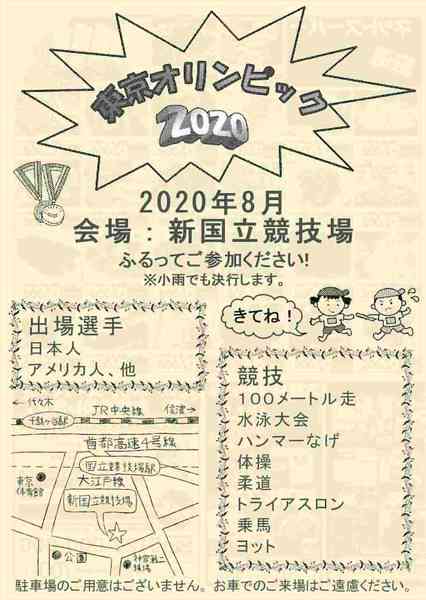 東京オリンピック
2020
2020年8月
会場：新国立競技場
ふるってご参加ください!
※小雨でも決行します。
きてね！
出場選手
日本人
アメリカ人、他
競技
100メートル走
水泳大会
ハンマーなげ
体操
柔道
トライアスロン
乗馬
ヨット
←代々木
JR中央線
信濃→
千駄ヶ谷駅
首都高速4号線
国立競技場駅
大江戸線
新国立競技場
東京
体育館
公園
神宮第二
球場
駐車場のご用意はございません。お車でのご来場はご遠慮ください。